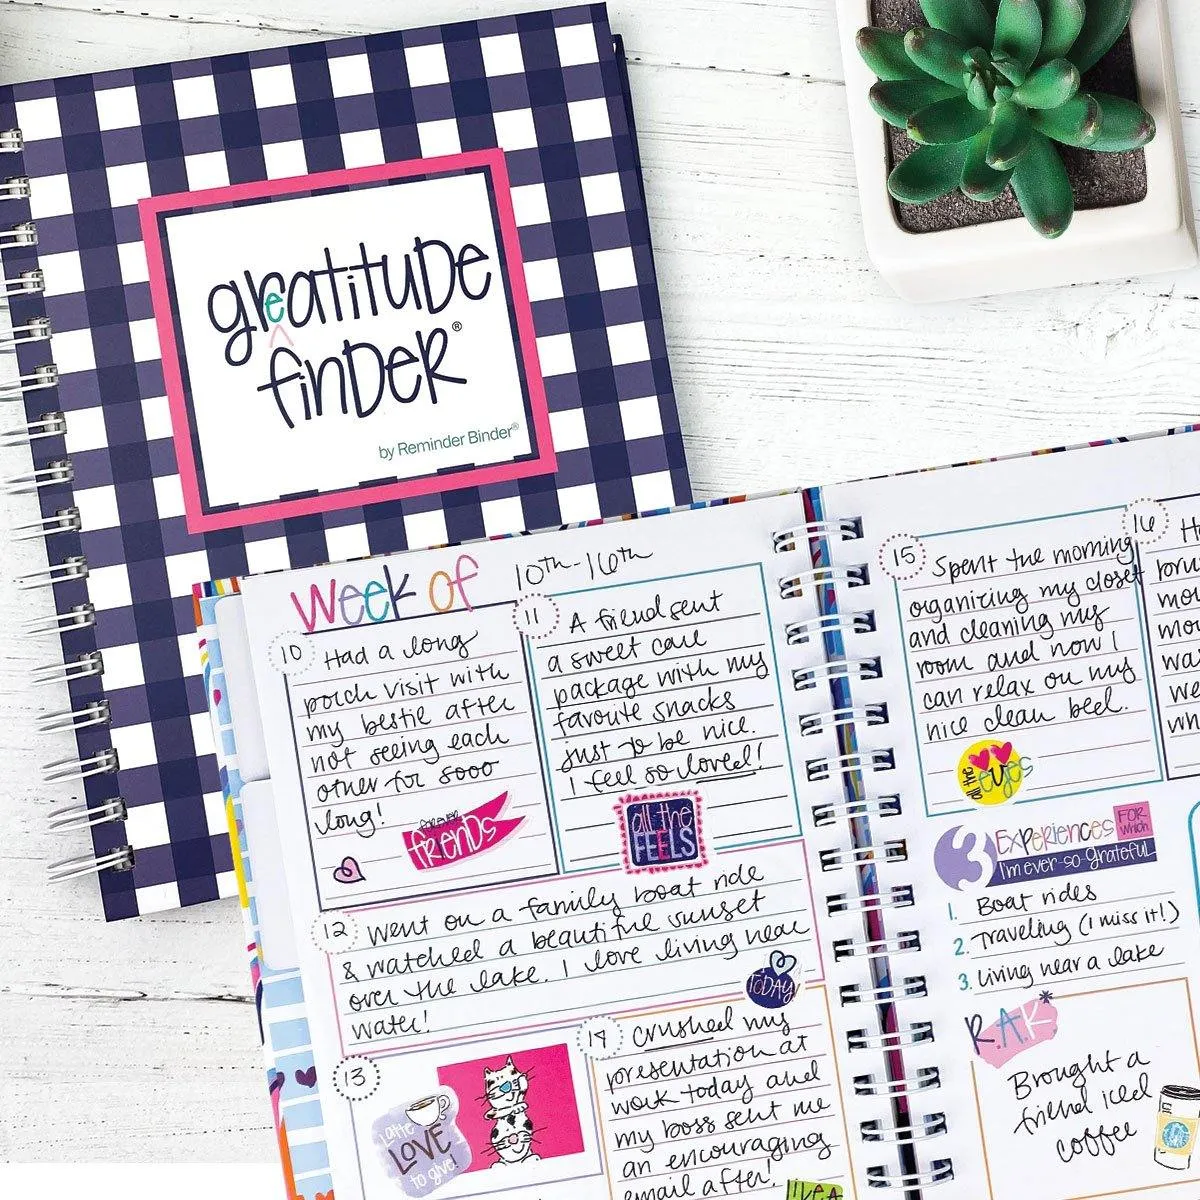 greatitude
finder®
by Reminder Binder®
Week of 10th-16th
10 Had a long
porch visit with
my bestie after
not seeing each
other for sooo
long!
forever
friends
11 A friend sent
a sweet care
package with my
favorite snacks
just to be nice.
I feel so loved!
all the
FEELS
12 Went on a family boat ride
& watched a beautiful sunset
over the lake. I love living near
water!
TODAY
13
Latte
LOVE
to give!
14 Crushed my
presentation at
work today and
my boss sent me
an encouraging
email after!
LIKE A
15 Spent the morning
organizing my closet
and cleaning my
room and now I
can relax on my
nice clean bed.
all the
eyes
16
3 Experiences FOR which
I'm ever-so-grateful
1. Boat rides
2. Traveling (I miss it!)
3. Living near a lake
R.A.K*
Brought a
friend iced
coffee